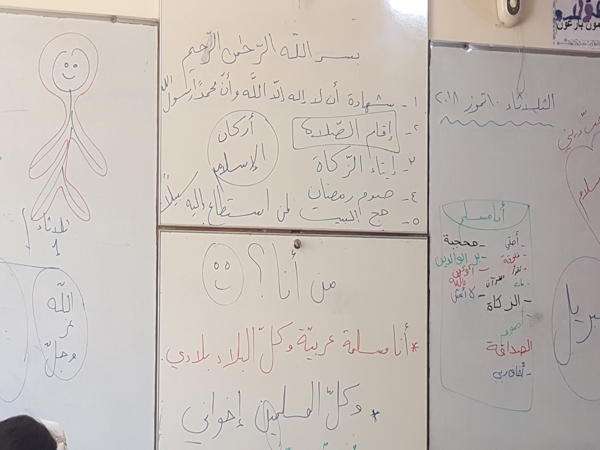 بسم الله الرحمن الرحيم
١- شهادة أن لا إله إلا الله وأنّ محمداً رسول الله
٢- إقام الصّلاة
٢- إيتاء الزّكاة
٤- صوم رمضان
٥- حج البيت لمن استطاع إليه سبيلاً
أركان الإسلام
من أنا؟
* أنا مسلمة عربيّة وكلّ البلاد بلادي.
* وكلّ المسلمين إخواني
الثلاثاء ١٠ تموز ٢٠١٨
أنا مسلم
- محجبة
- بر الوالدين
- الزكاة
الصداقة
ثلاثاء
1
الله
عز
وجلّ